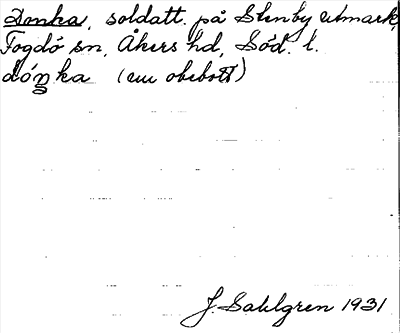 Donka, soldatt. på Stenby utmark,
Fogdö sn, Åkers hd, Söd. l.
dóŋka (em obebott)
J. Sahlgren 1931